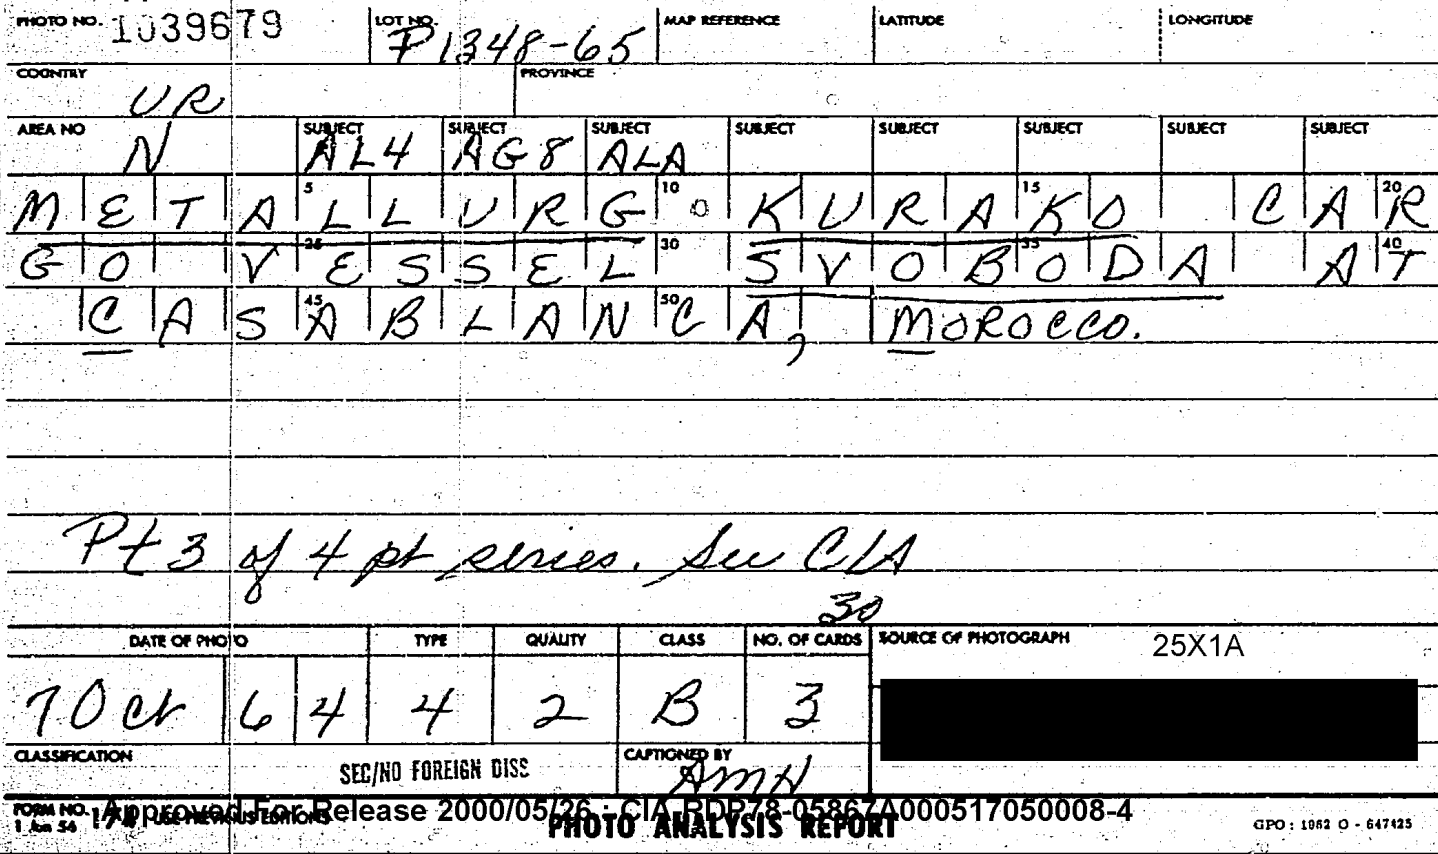 PHOTO NO. 1039679 LOT NO. P1348-65 MAP REFERENCE LATITUDE LONGITUDE
COUNTRY UR PROVINCE
AREA NO N SUBJECT AL4 SUBJECT AG8 SUBJECT ALA SUBJECT SUBJECT SUBJECT SUBJECT SUBJECT
METALLURG KURAKO CAR
GO VESSEL SVOBODA AT
CASABLANCA, MOROCCO.
Pt 3 of 4 pt series. See CIA
30
DATE OF PHOTO TYPE QUALITY CLASS NO. OF CARDS SOURCE OF PHOTOGRAPH 25X1A
7 Oct 64 4 2 B 3
CLASSIFICATION SEC/NO FOREIGN DISS CAPTIONED BY AMH
FORM NO. USE PREVIOUS EDITIONS
1 Jan 54
Approved For Release 2000/05/26 : CIA-RDP78-05867A000517050008-4
PHOTO ANALYSIS REPORT GPO : 1962 O - 647425